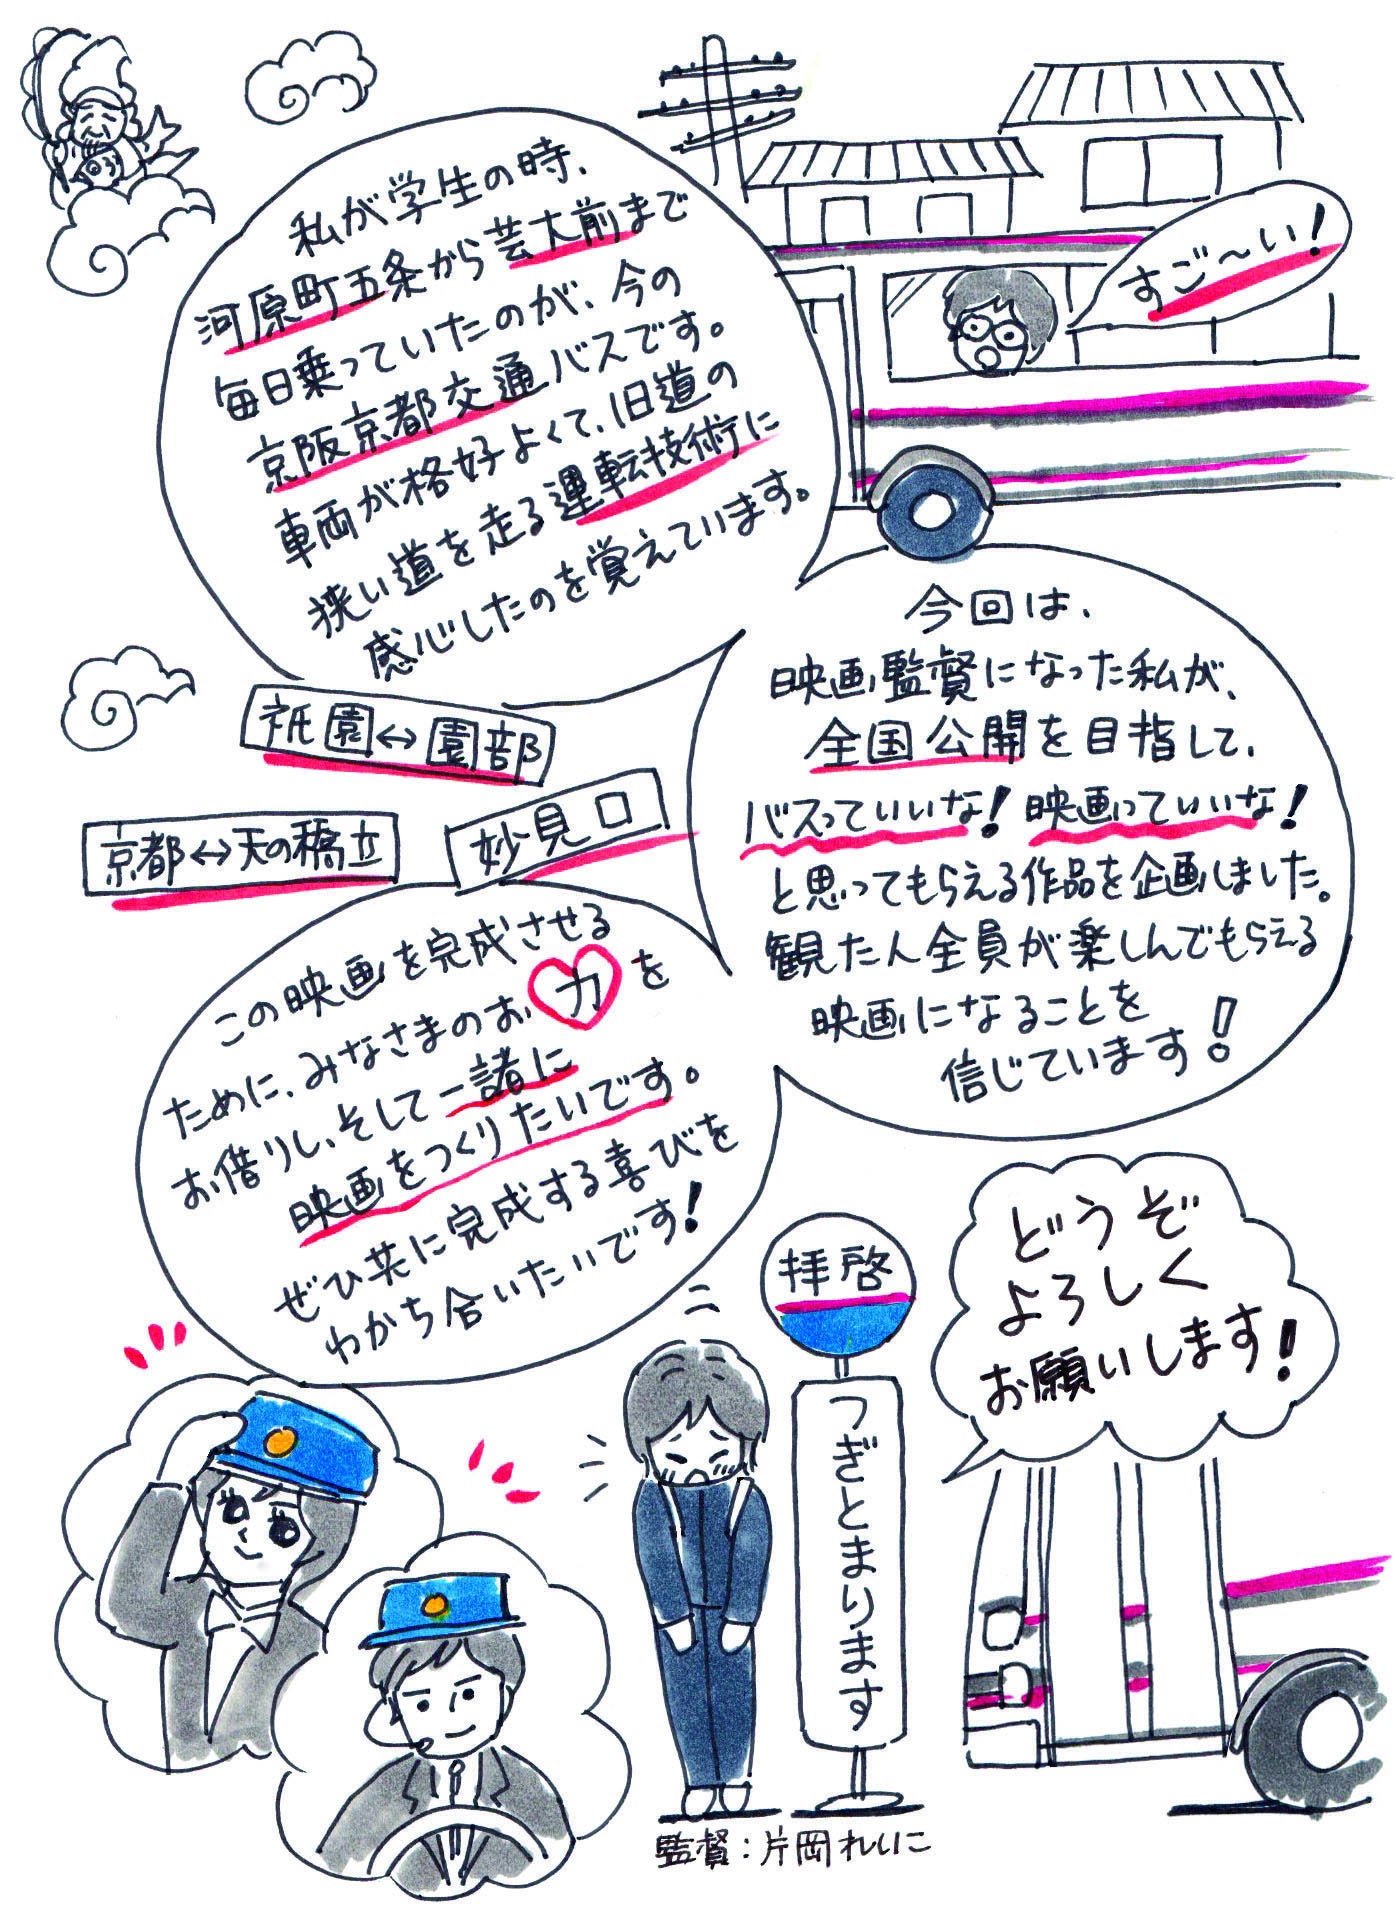 私が学生の時、
河原町五条から芸大前まで
毎日乗っていたのが、今の
京阪京都交通バスです。
車両が格好よくて、旧道の
狭い道を走る運転技術に
感心したのを覚えています。
すご〜い!
今回は、
映画監督になった私が、
全国公開を目指して、
バスっていいな!映画っていいな!
と思ってもらえる作品を企画しました。
観た人全員が楽しんでもらえる
映画になることを
信じています!
祇園↔園部
京都↔天の橋立
妙見口
この映画を完成させる
ために、みなさまのお力を
お借りし、そして一諸に
映画をつくりたいです。
ぜひ共に完成する喜びを
わかち合いたいです!
どうぞ
よろしく
お願いします!
拝啓
つぎとまります
監督:片岡れいこ